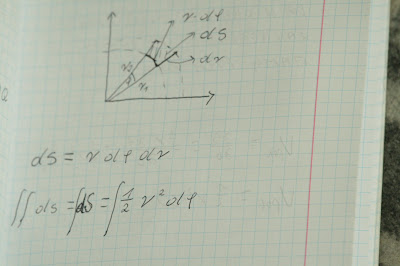 r·dφ
dS
dr
r₂
r₁
dS = r dφ dr
∬ ds = ∫dS = ∫ 1/2 r² dφ